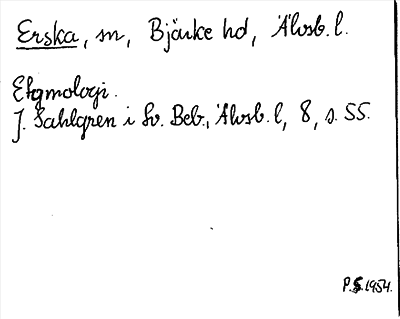 Erska, sn, Bjärke hd, Älvsb. l.
Etymologi.
J. Sahlgren i Sv. Beb., Älvsb. l, 8, s. 55.
P.S. 1954.